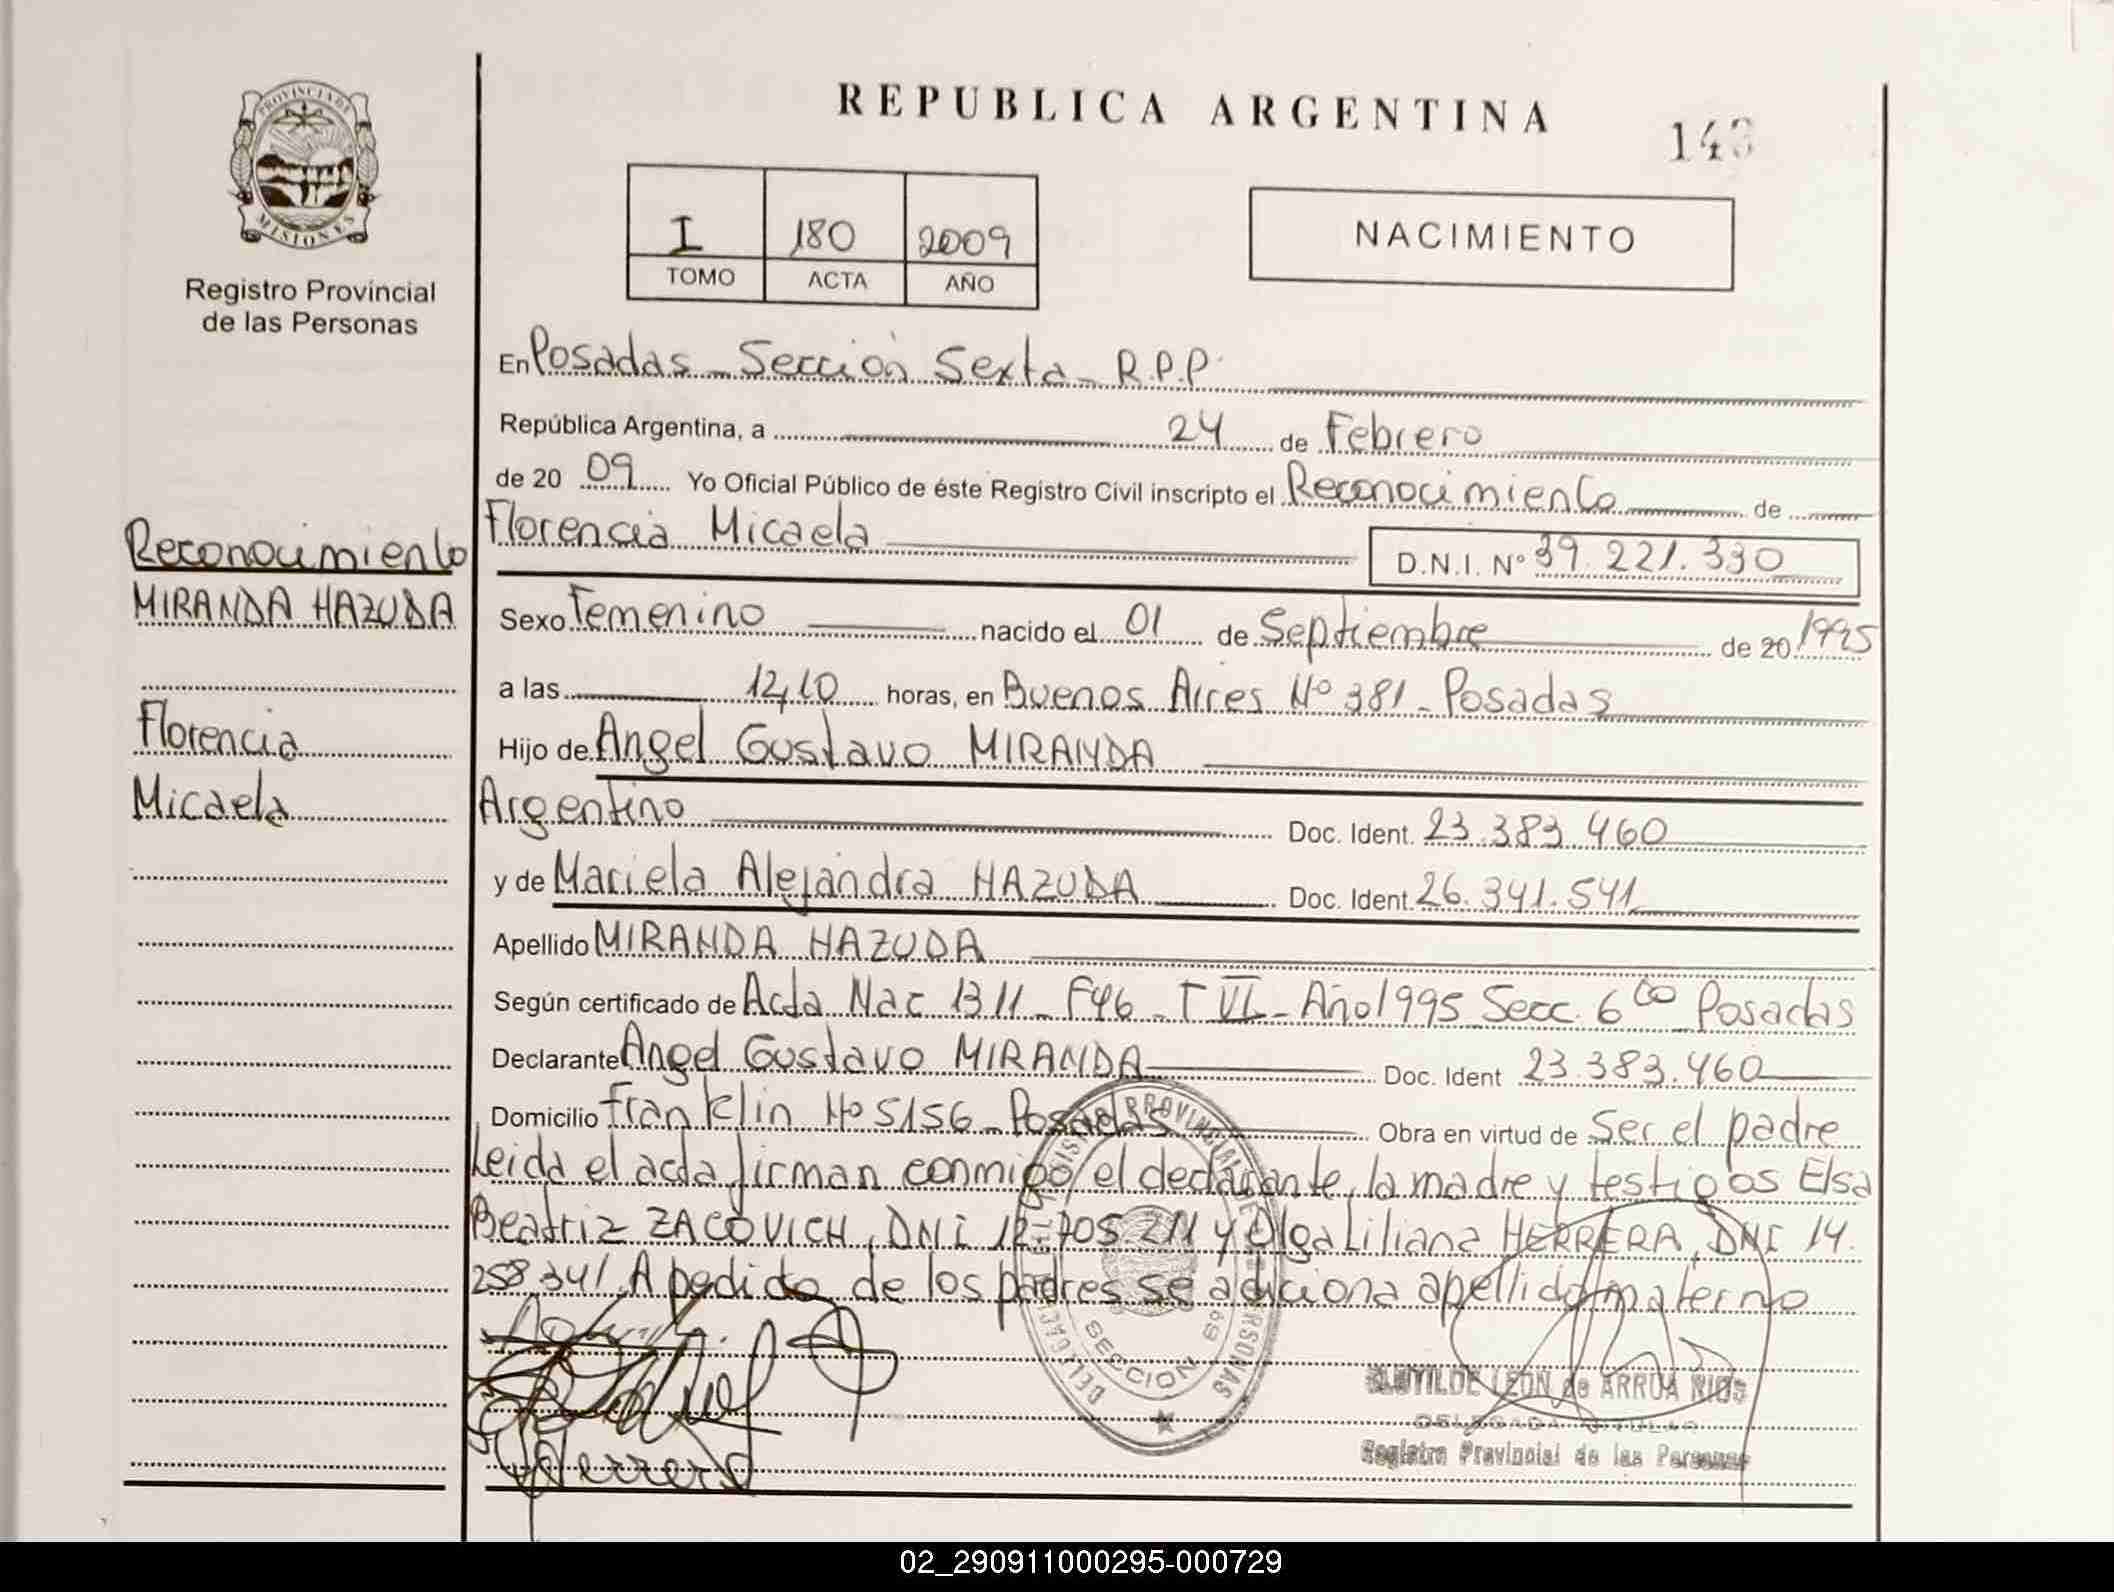 REPUBLICA ARGENTINA
PROVINCIA DE
MISIONES
Registro Provincial
de las Personas
I 180 2009
TOMO ACTA AÑO
NACIMIENTO
En Posadas - Sección Sexta - R.P.P.
República Argentina, a 24 de Febrero
de 20 09 Yo Oficial Público de éste Registro Civil inscripto el Reconocimiento de
Florencia Micaela D.N.I. Nº 39.221.330
Sexo Femenino nacido el 01 de Septiembre de 20 1995
a las 12,10 horas, en Buenos Aires Nº 381 - Posadas
Hijo de Angel Gustavo MIRANDA
Argentino Doc. Ident. 23.383.460
y de Mariela Alejandra HAZUDA Doc. Ident. 26.341.541
Apellido MIRANDA HAZUDA
Según certificado de Acta Nac 1311 - F46 - T VI - Año 1995 Secc. 6ta Posadas
Declarante Angel Gustavo MIRANDA Doc. Ident 23.383.460
Domicilio Franklin Nº 5156 - Posadas Obra en virtud de Ser el padre
Leida el acta firman conmigo el declarante, la madre y testigos Elsa
Beatriz ZACOVICH, DNI 12.705.211 y Olga Liliana HERRERA, DNI 14.
258.341. A pedido de los padres se adiciona apellido materno
Reconocimiento
MIRANDA HAZUDA
Florencia
Micaela
SECCION
Herrera
CLOTILDE LEON de ARRUA RIOS
DELEGADA TITULAR
Registro Provincial de las Personas
02_290911000295-000729